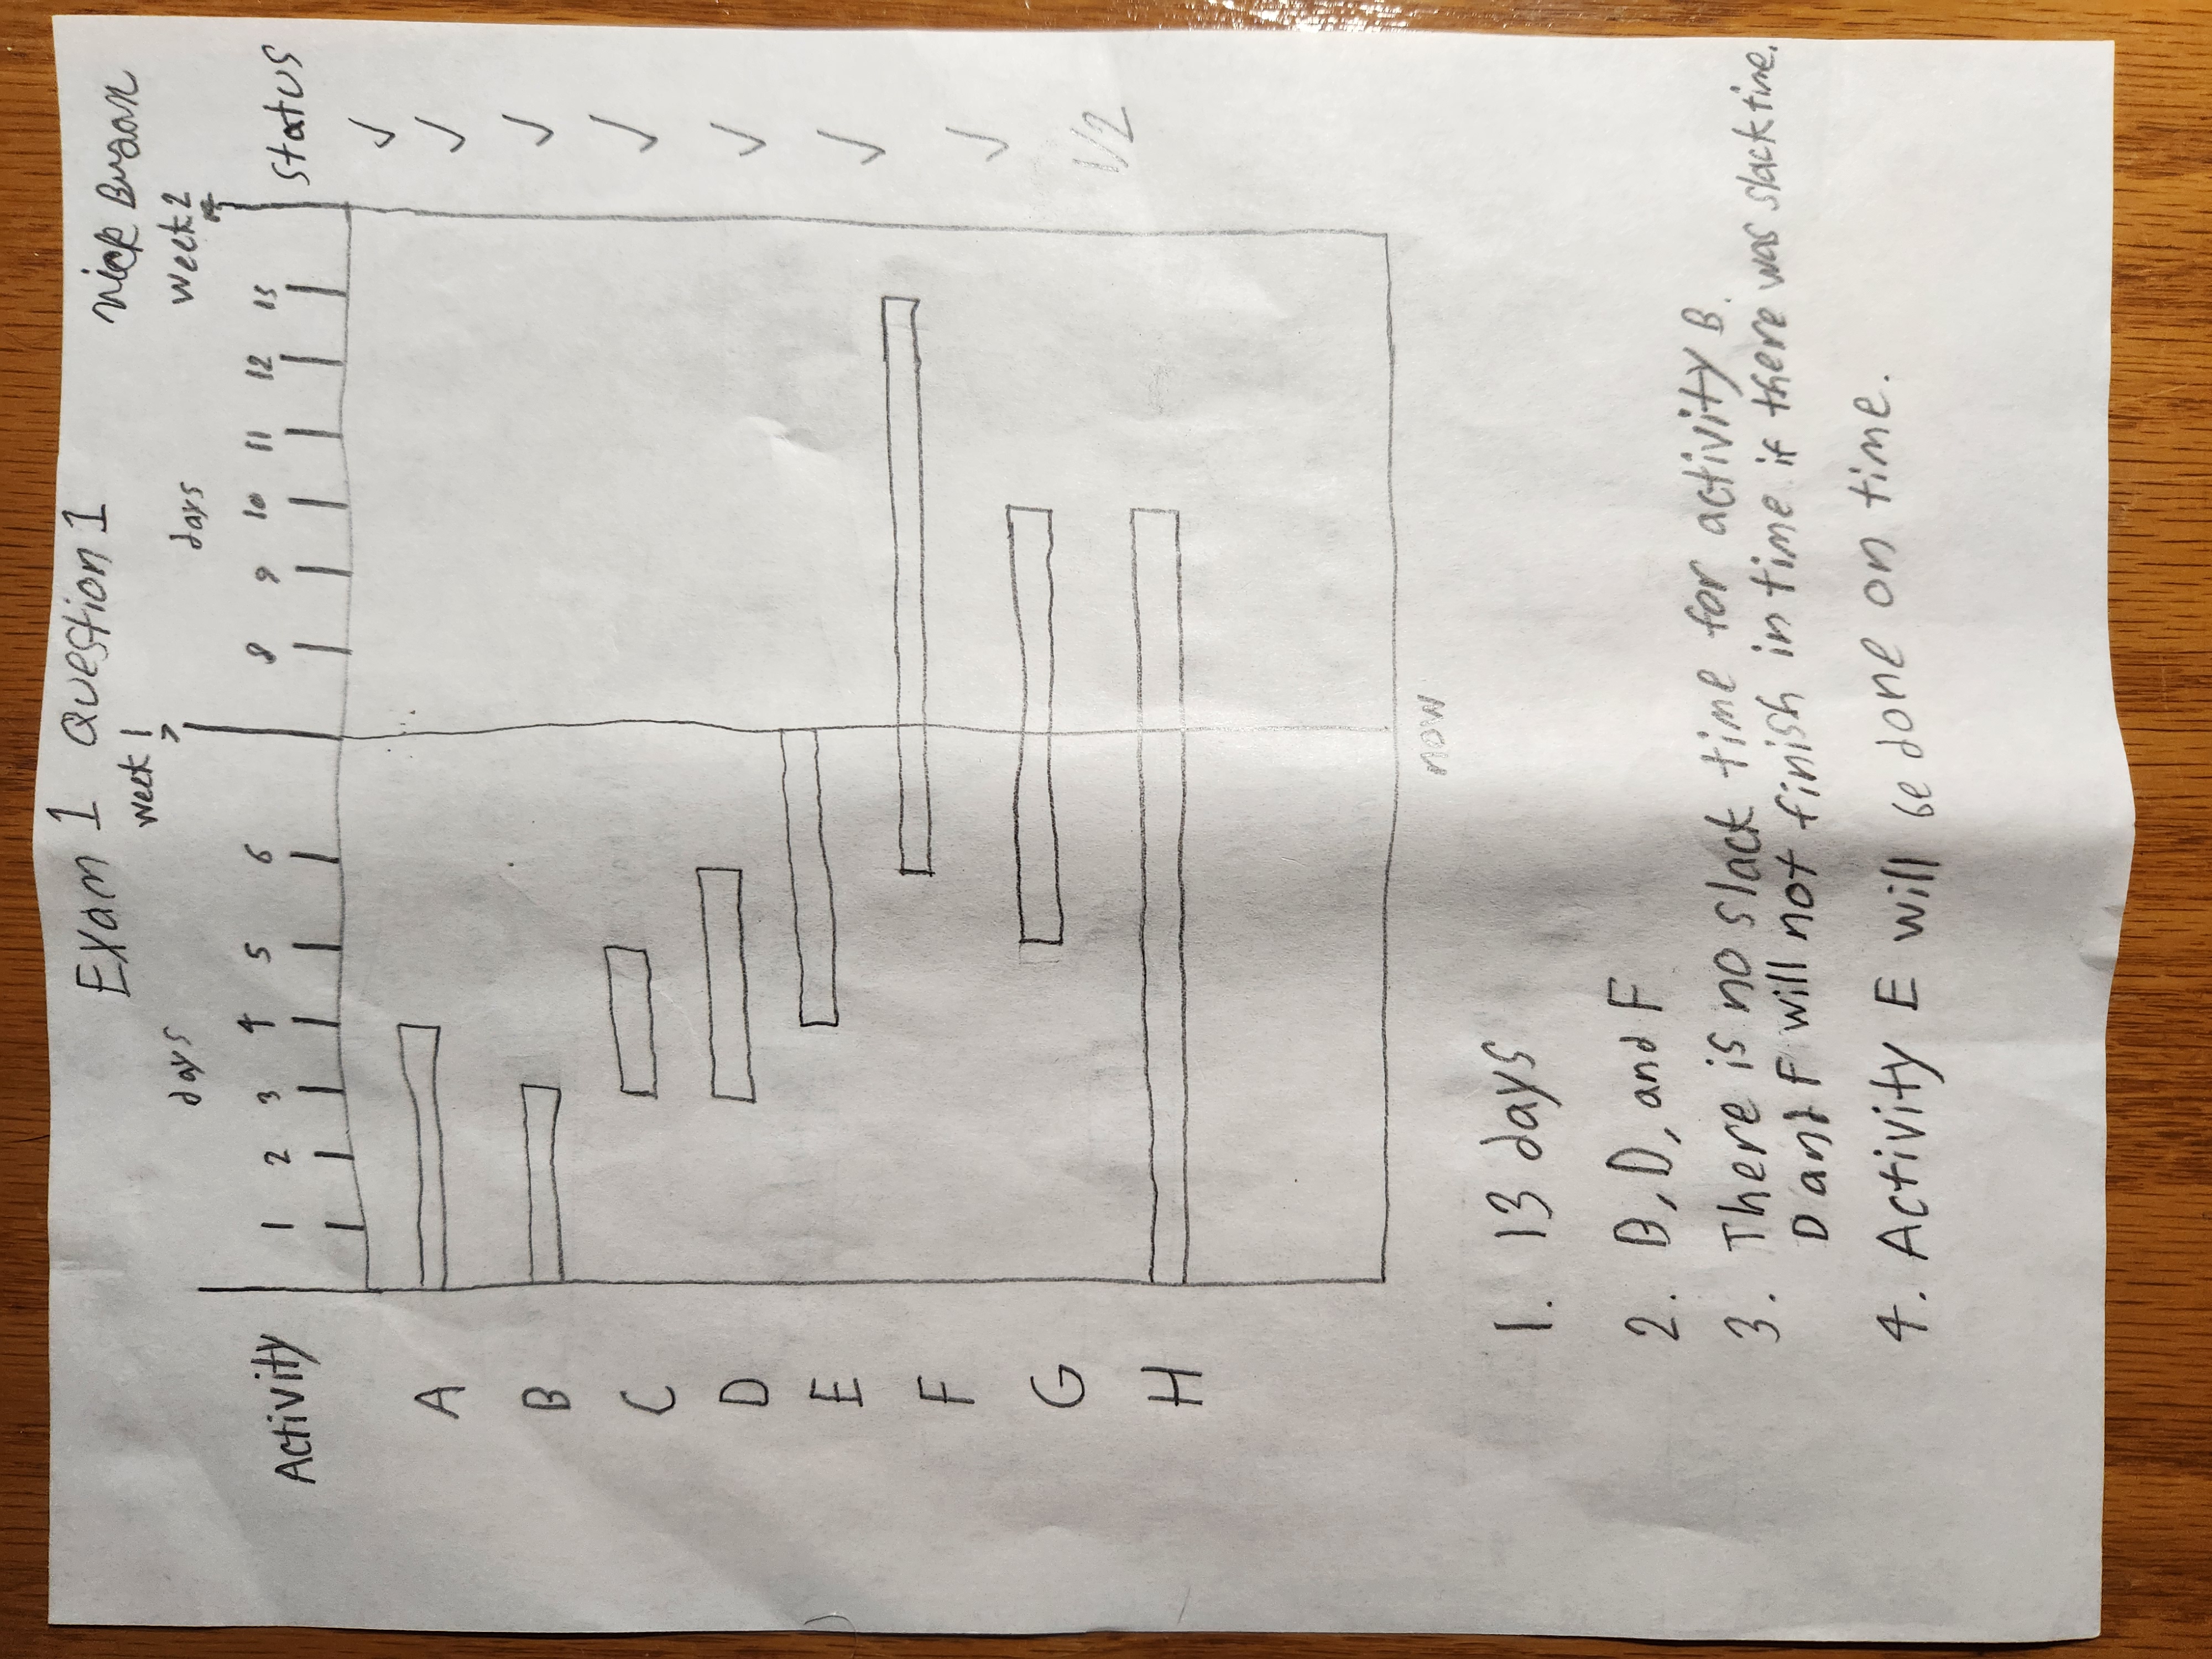 Exam 1 Question 1
Nick
week 1
7
days
days
week 2
14
Activity
1 2 3 4 5 6
8 9 10 11 12 13
status
✓
A
✓
B
✓
C
✓
D
✓
E
✓
F
✓
G
1/2
H
now
1. 13 days
2. B, D, and F
3. There is no slack time for activity B.
D and F will not finish in time if there was slack time.
4. Activity E will be done on time.